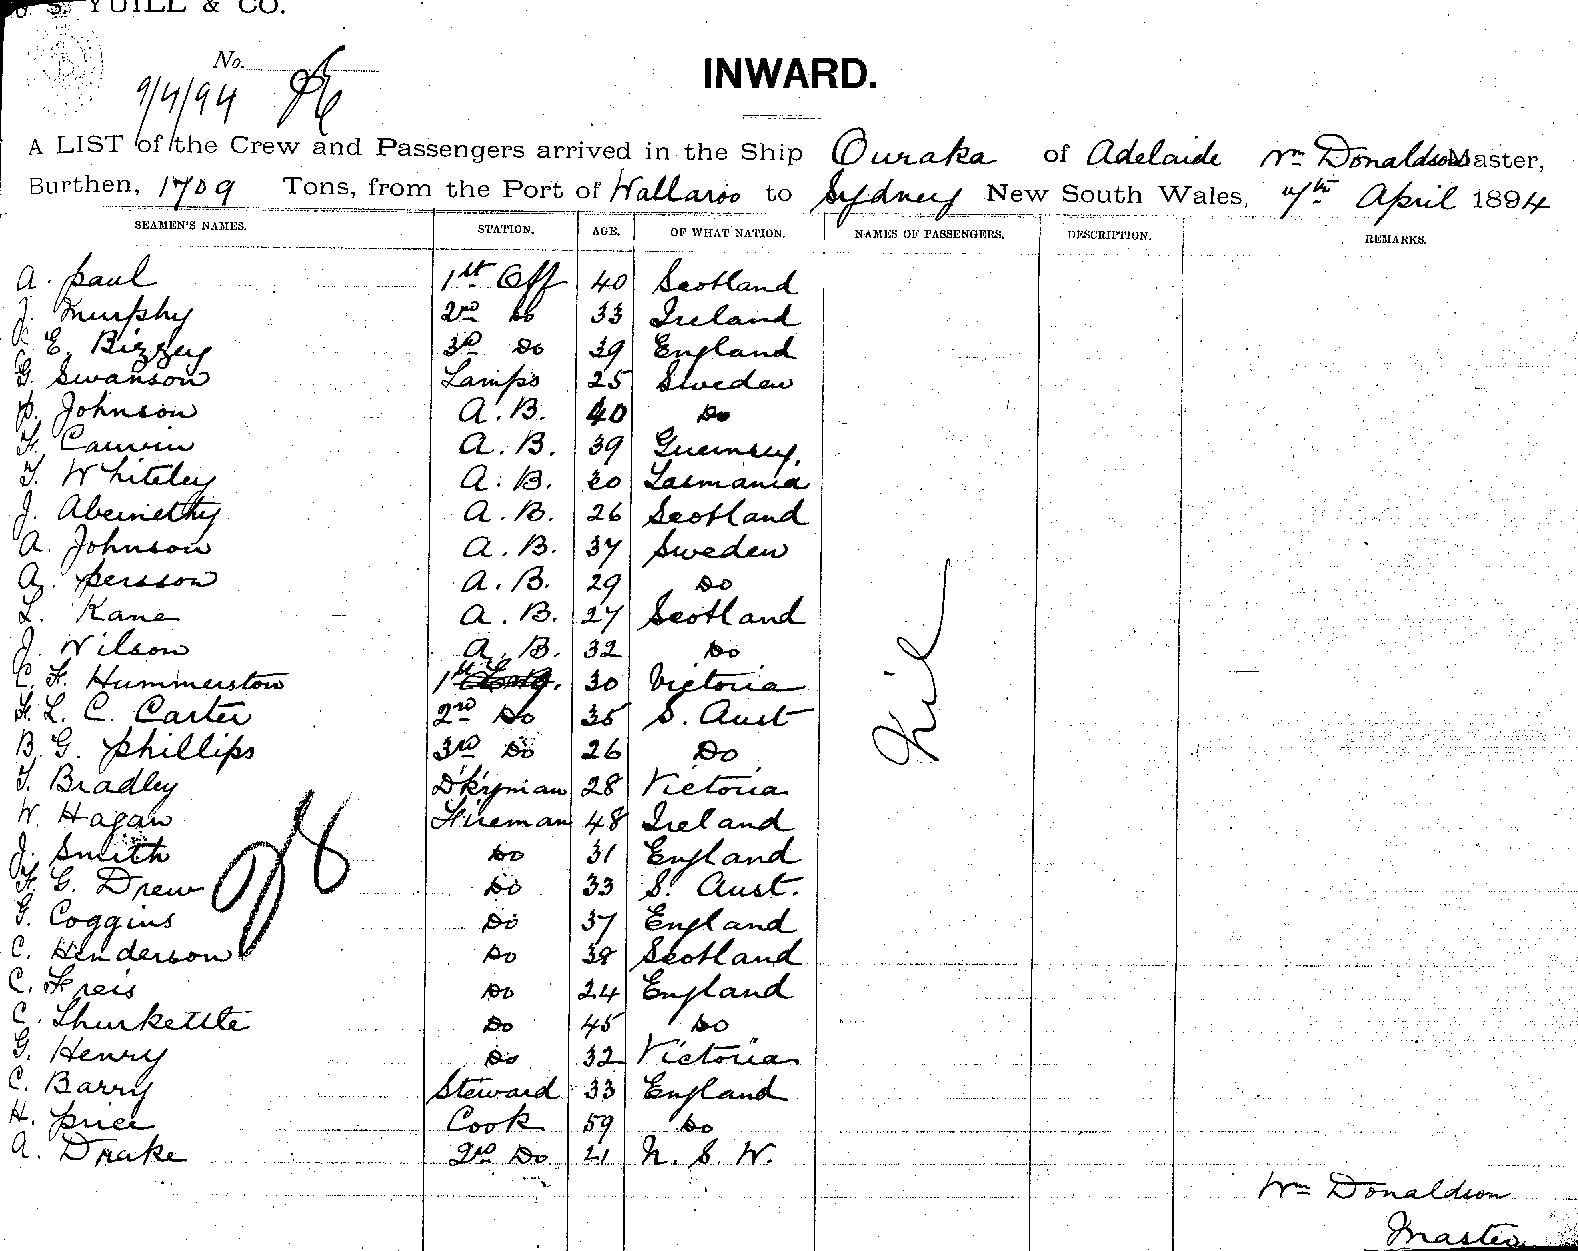 S. YUILL & CO.
No.
9/4/94
INWARD.
A LIST of the Crew and Passengers arrived in the Ship Ouraka of Adelaide Wm Donaldson Master,
Burthen, 1709 Tons, from the Port of Wallaroo to Sydney New South Wales, 7th April 1894
SEAMEN'S NAMES. STATION. AGE. OF WHAT NATION. NAMES OF PASSENGERS. DESCRIPTION. REMARKS.
A. Paul 1st Off 40 Scotland
J. Murphy 2nd Do 33 Ireland
E. Bizzey 3rd Do 39 England
G. Swanson Lamps 25 Sweden
P. Johnson A.B. 40 Do
F. Cauvin A.B. 39 Guernsey,
T. Whiteley A.B. 20 Tasmania
J. Abernethy A.B. 26 Scotland
A. Johnson A.B. 37 Sweden
A. Persson A.B. 29 Do
L. Kane A.B. 27 Scotland
J. Wilson A.B. 32 Do
C. F. Hummerston 1st Eng. 30 Victoria
F. L. C. Carter 2nd Do 35 S. Aust
B. G. Phillips 3rd Do 26 Do
T. Bradley D'kyman 28 Victoria
W. Hagan Fireman 48 Ireland
J. Smith Do 31 England
F. G. Drew Do 33 S. Aust.
G. Coggins Do 37 England
C. Henderson Do 38 Scotland
C. Freis Do 24 England
C. Thurkettle Do 45 Do
G. Henry Do 32 Victoria
C. Barry Steward 33 England
H. Price Cook 59 Do
A. Drake 2nd Do 21 N. S. W.
Nil
Wm Donaldson
Master